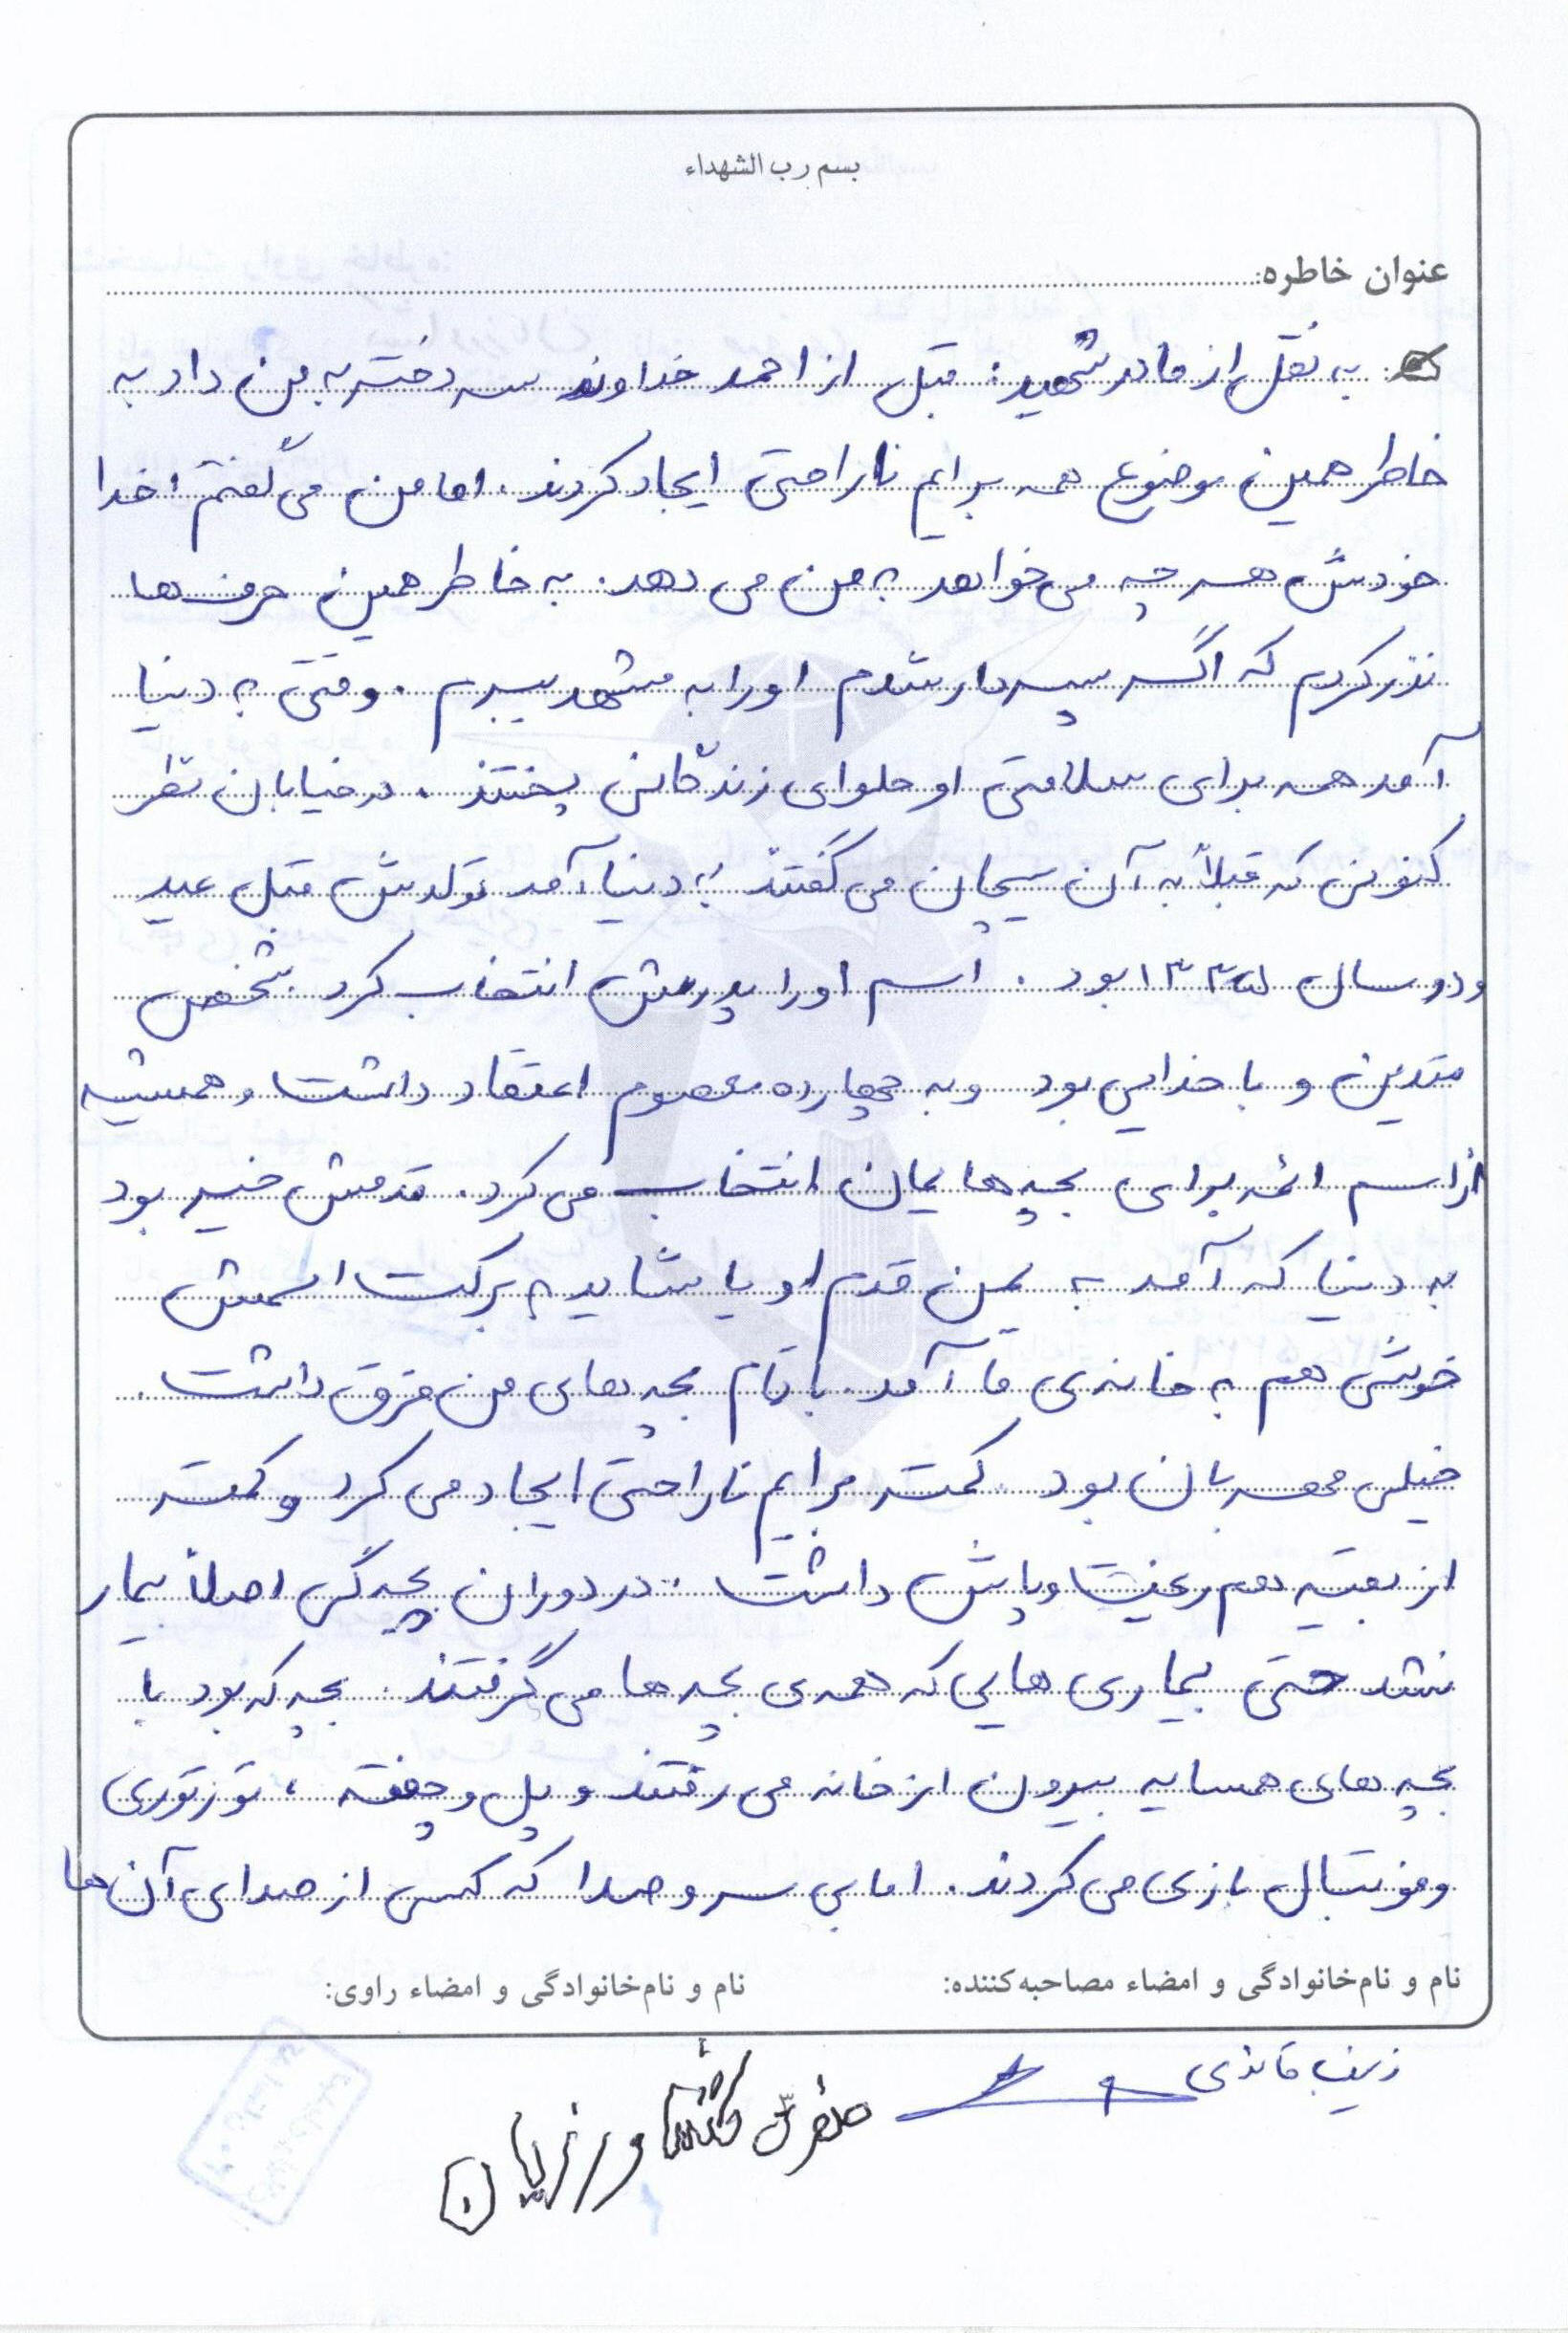 بسم رب الشهداء
عنوان خاطره:
به نقل از مادر شهید: قبل از احمد خداوند سه دختر به من داد به
خاطر همین موضوع همه برایم ناراحتی ایجاد کردند. اما من می گفتم خدا
خودش هر چه می خواهد به من می دهد. به خاطر همین حرف ها
نذر کردم که اگر پسردار شدم او را به مشهد ببرم. وقتی به دنیا
آمد همه برای سلامتی او حلوای زندگانی پختند. در خیابان نظر
کنونی که قبلاً به آن سیچان می گفتند به دنیا آمد تولدش قبل عید
و در سال بود. اسم او را پدرش انتخاب کرد شخص
متدین و با خدایی بود و به چهارده معصوم اعتقاد داشت و همیشه
از اسم ائمه برای بچه هایمان انتخاب می کرد. قدمش خیر بود
به دنیا که آمد به یمن قدم او یا شاید به برکت اسمش
خوشی هم به خانه ی ما آمد. با تمام بچه های من فرق داشت.
خیلی مهربان بود. کمتر برایم ناراحتی ایجاد می کرد و کمتر
از بقیه هم ریخت و پاش داشت. در دوران بچه گی اصلاً بیمار
نشد حتی بیماری هایی که همه ی بچه ها می گرفتند. بچه که بود با
بچه های همسایه بیرون از خانه می رفتند و پل و چفته ، توزتوری
و فوتبال بازی می کردند. اما بی سر و صدا که کسی از صدای آن ها
نام و نام‌خانوادگی و امضاء مصاحبه‌کننده: نام و نام‌خانوادگی و امضاء راوی:
زینب قائدی
کشاورزیان